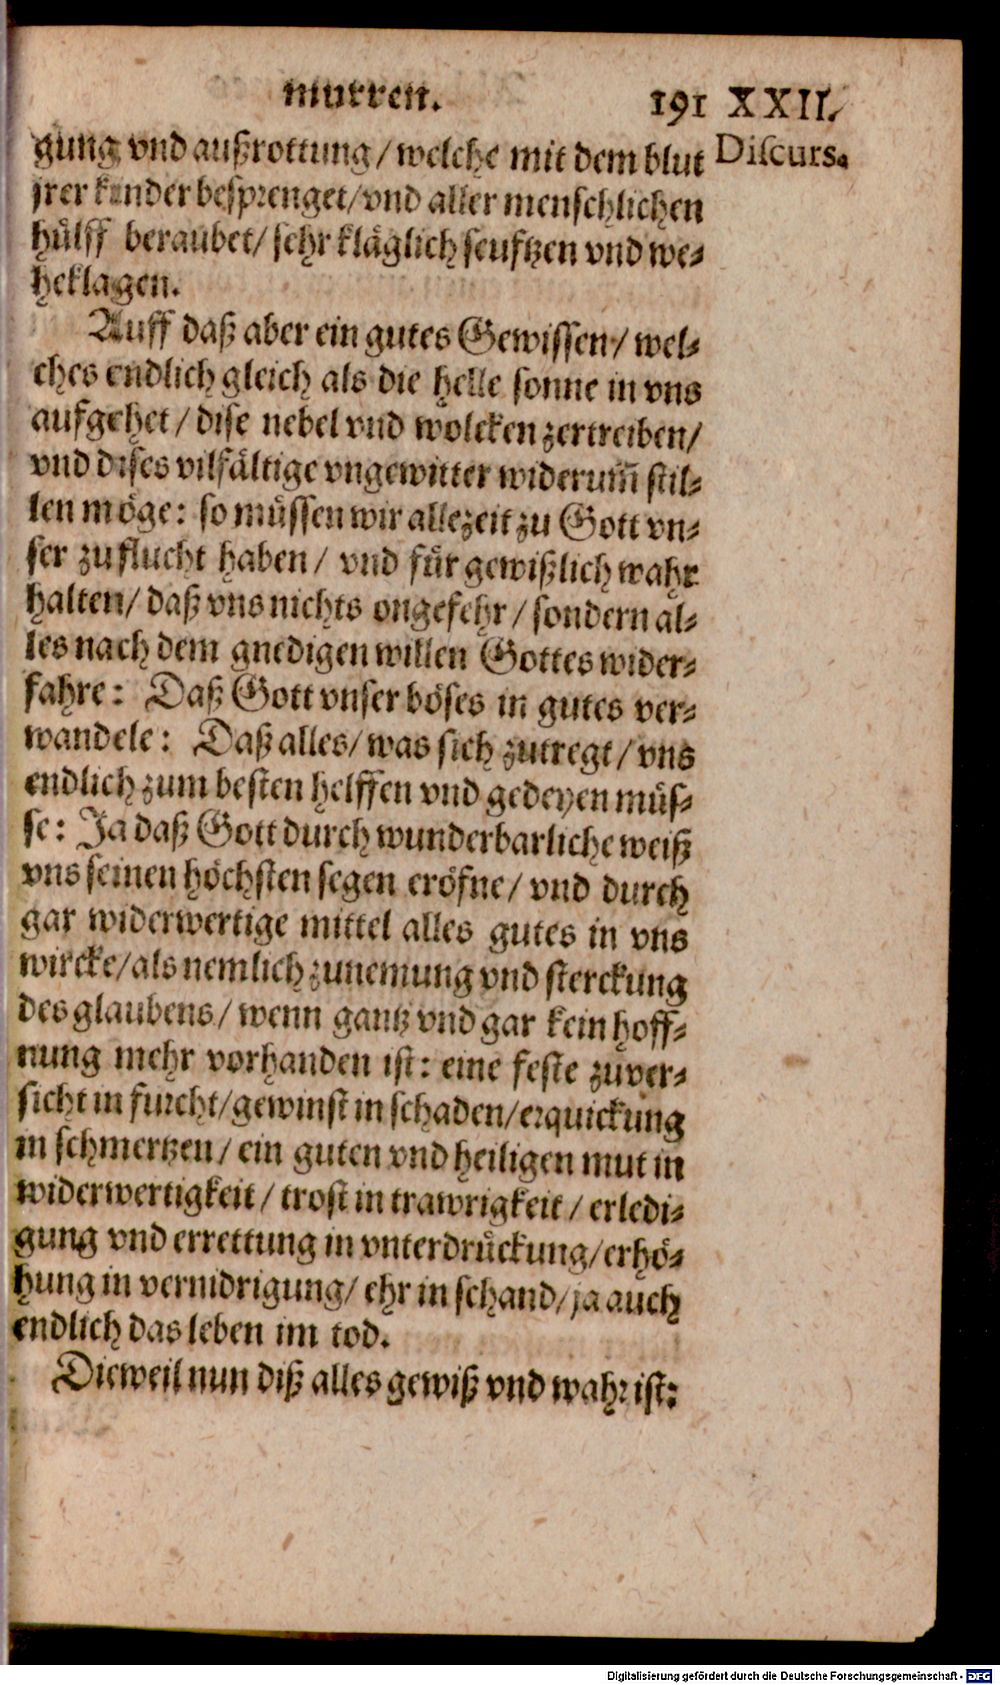 murren. 191 XXII.
gung vnd außrottung/ welche mit dem blut Discurs.
jrer kinder besprenget/ vnd aller menschlichen
hülff beraubet/ sehr kläglich seufftzen vnd we-
heklagen.
Auff daß aber ein gutes Gewissen/ wel-
ches endlich gleich als die helle sonne in vns
aufgehet/ dise nebel vnd wolcken zertreiben/
vnd dises vilfältige vngewitter widerum̃ stil-
len möge: so müssen wir allezeit zu Gott vn-
ser zuflucht haben/ vnd für gewißlich wahr
halten/ daß vns nichts ongefehr/ sondern al-
les nach dem gnedigen willen Gottes wider-
fahre: Daß Gott vnser böses in gutes ver-
wandele: Daß alles/ was sich zutregt/ vns
endlich zum besten helffen vnd gedeyen müs-
se: Ja daß Gott durch wunderbarliche weiß
vns seinen höchsten segen eröfne/ vnd durch
gar widerwertige mittel alles gutes in vns
wircke/ als nemlich zunemung vnd sterckung
des glaubens/ wenn gantz vnd gar kein hoff-
nung mehr vorhanden ist: eine feste zuver-
sicht in furcht/ gewinst in schaden/ erquickung
in schmertzen/ ein guten vnd heiligen mut in
widerwertigkeit/ trost in trawrigkeit/ erledi-
gung vnd errettung in vnterdrückung/ erhö-
hung in vernidrigung/ ehr in schand/ ja auch
endlich das leben im tod.
Dieweil nun diß alles gewiß vnd wahr ist:
Digitalisierung gefördert durch die Deutsche Forschungsgemeinschaft - DFG